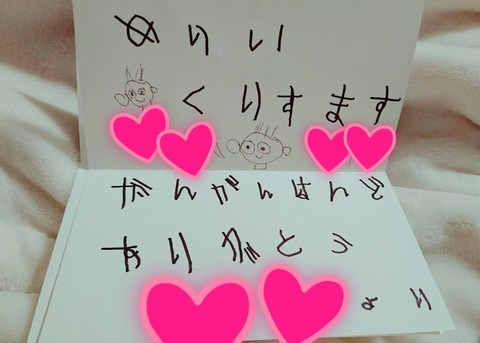 めりい
くりすます
だんがんはんど
ありがとう
より